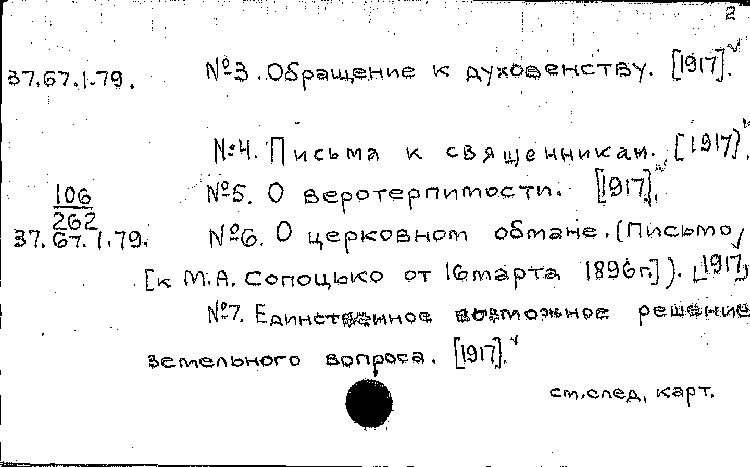 2
37.67.1.79. №3. Обращение к духовенству. [1917].
№4. Письма к священникам. [1917].
106
№5. О веротерпимости. [1917].
262
37.67.1.79. №6. О церковном обмане. (Письмо
[к М.А. Сопоцько от 16 марта 1896 г.]). [1917]
№7. Единственное возможное решение
земельного вопроса. [1917].
см. след. карт.